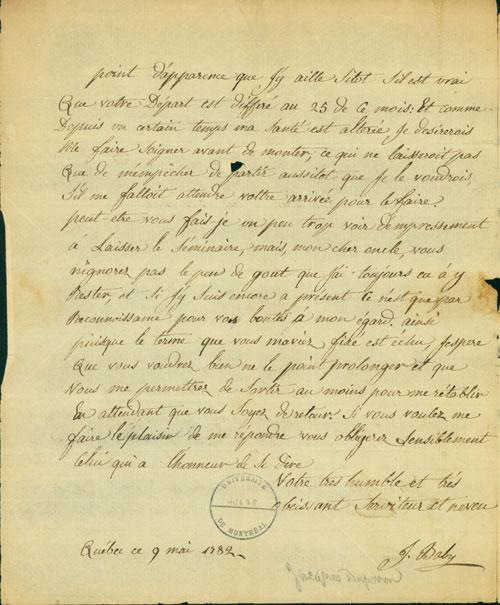 point d'apparence que j'y aille sitot s'il est vrai
Que votre Depart est differé au 25 de ce mois. Et comme
Depuis un certain temps ma Santé est alterée je desirerais
Me faire Soigner avant de monter, ce qui ne laisseroit pas
Que de m'empêcher de partir aussitot que je le voudrois,
S'il me falloit attendre vottre arrivée pour le faire.
peut-etre vous fais-je un peu trop voir d'empressement
à Laisser le Séminaire, mais, mon cher oncle, vous
n'ignorez pas le peu de gout que j'ai toujours eu à y
Rester, et si j'y suis encore a présent ce n'est que par
Reconnoissance pour vos bontés a mon égard. ainsi
puisque le terme que vous m'aviez fixé est echu, j'espere
Que vous voudrez bien ne le point prolonger et que
Vous me permettrez de Sortir au moins pour me rétablir
En attendant que vous Soyez de retour. Si vous voulez me
faire le plaisir de me répondre vous obligerez Sensiblement
Celui qui a l'honneur de se dire
Votre tres humble et trés
obeissant Serviteur et neveu
UNIVERSITÉ
DE MONTRÉAL
Québec ce 9 mai 1782.
J. Baby